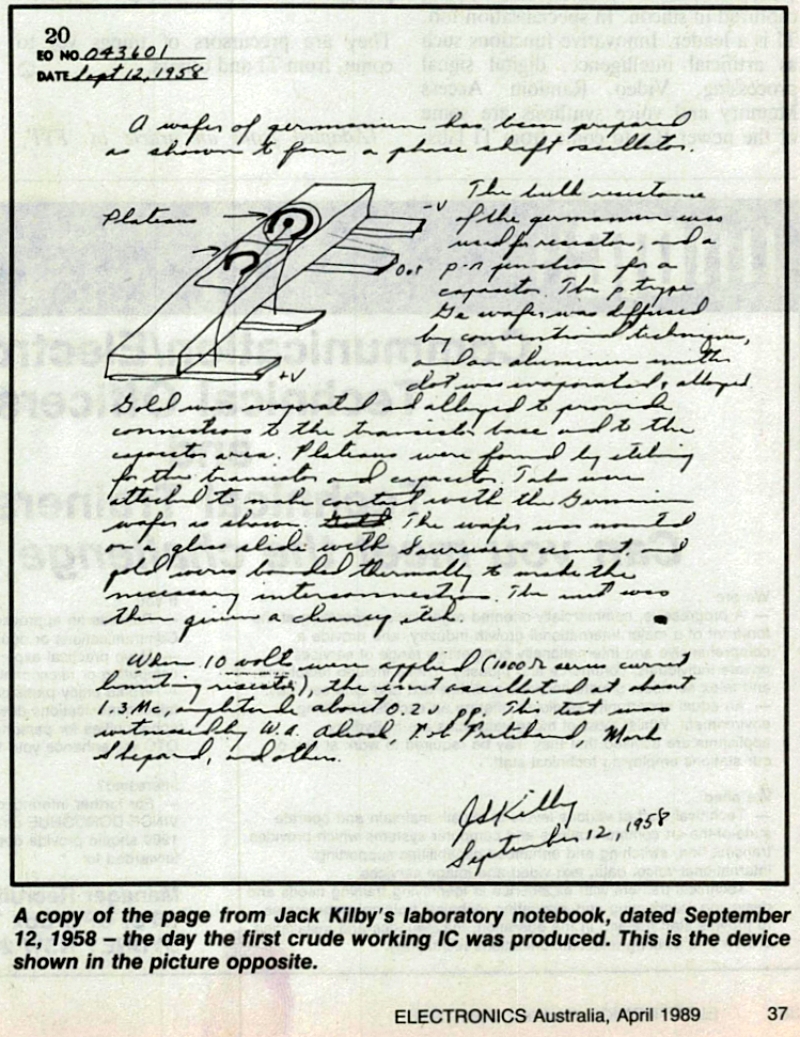 20
EO NO. 043601
DATE Sept 12, 1958
A wafer of germanium has been prepared
as shown to form a phase shift oscillator.
Plateaus
-V
Out
+V
The bulk resistance
of the germanium was
used for resistor, and a
p-n junction for a
capacitor. The p type
Ge wafer was diffused
by conventional techniques,
and an aluminum emitter
dot was evaporated & alloyed.
Gold was evaporated and alloyed to provide
connections to the transistor base and to the
capacitor area. Plateaus were formed by etching
for the transistor and capacitor. Tabs were
attached to make contact with the Germanium
wafer as shown. The wafer was mounted
on a glass slide with cement and
gold wires bonded thermally to make the
necessary interconnections. The unit was
then given a cleanup etch.
When 10 volts were applied (1000 Ω series current
limiting resistor), the unit oscillated at about
1.3 Mc, amplitude about 0.2 v pp. This test was
witnessed by W.A. Adcock Pritchard Mark
Shepard, and others.
JSKilby
September 12, 1958
A copy of the page from Jack Kilby's laboratory notebook, dated September
12, 1958 – the day the first crude working IC was produced. This is the device
shown in the picture opposite.
ELECTRONICS Australia, April 1989 37